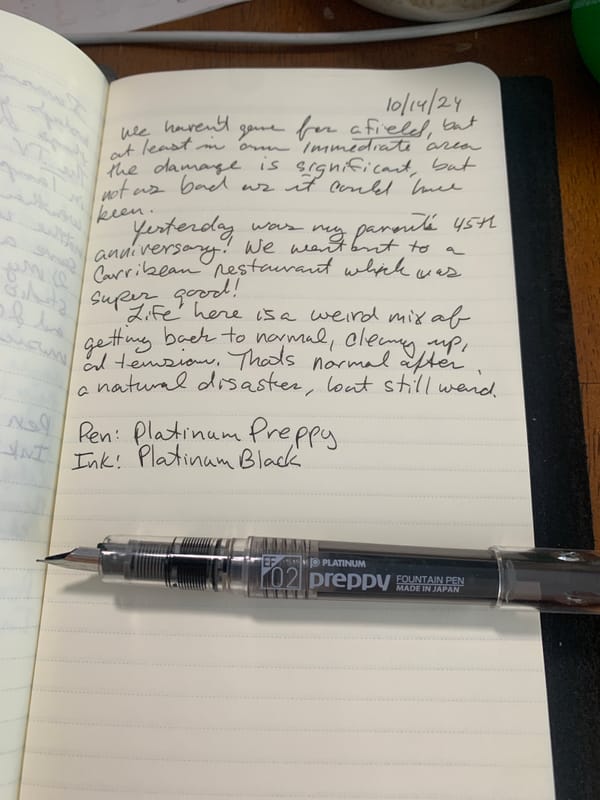 10/14/24
We haven't gone far afield, but
at least in our immediate area
the damage is significant, but
not as bad as it could have
been.
Yesterday was my parent's 45th
anniversary! We went out to a
Carribean restaurant which was
super good!
Life here is a weird mix of
getting back to normal, cleaning up,
and tension. Thats normal after
a natural disaster, but still weird.
Pen: Platinum Preppy
Ink: Platinum Black
EF
02
PLATINUM
preppy FOUNTAIN PEN
MADE IN JAPAN
Pen
Ink